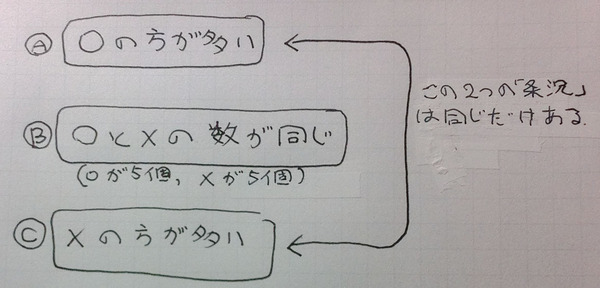 Ⓐ ○の方が多い
Ⓑ ○と×の数が同じ
(○が5個, ×が5個)
Ⓒ ×の方が多い
この2つの「状況」
は同じだけある.